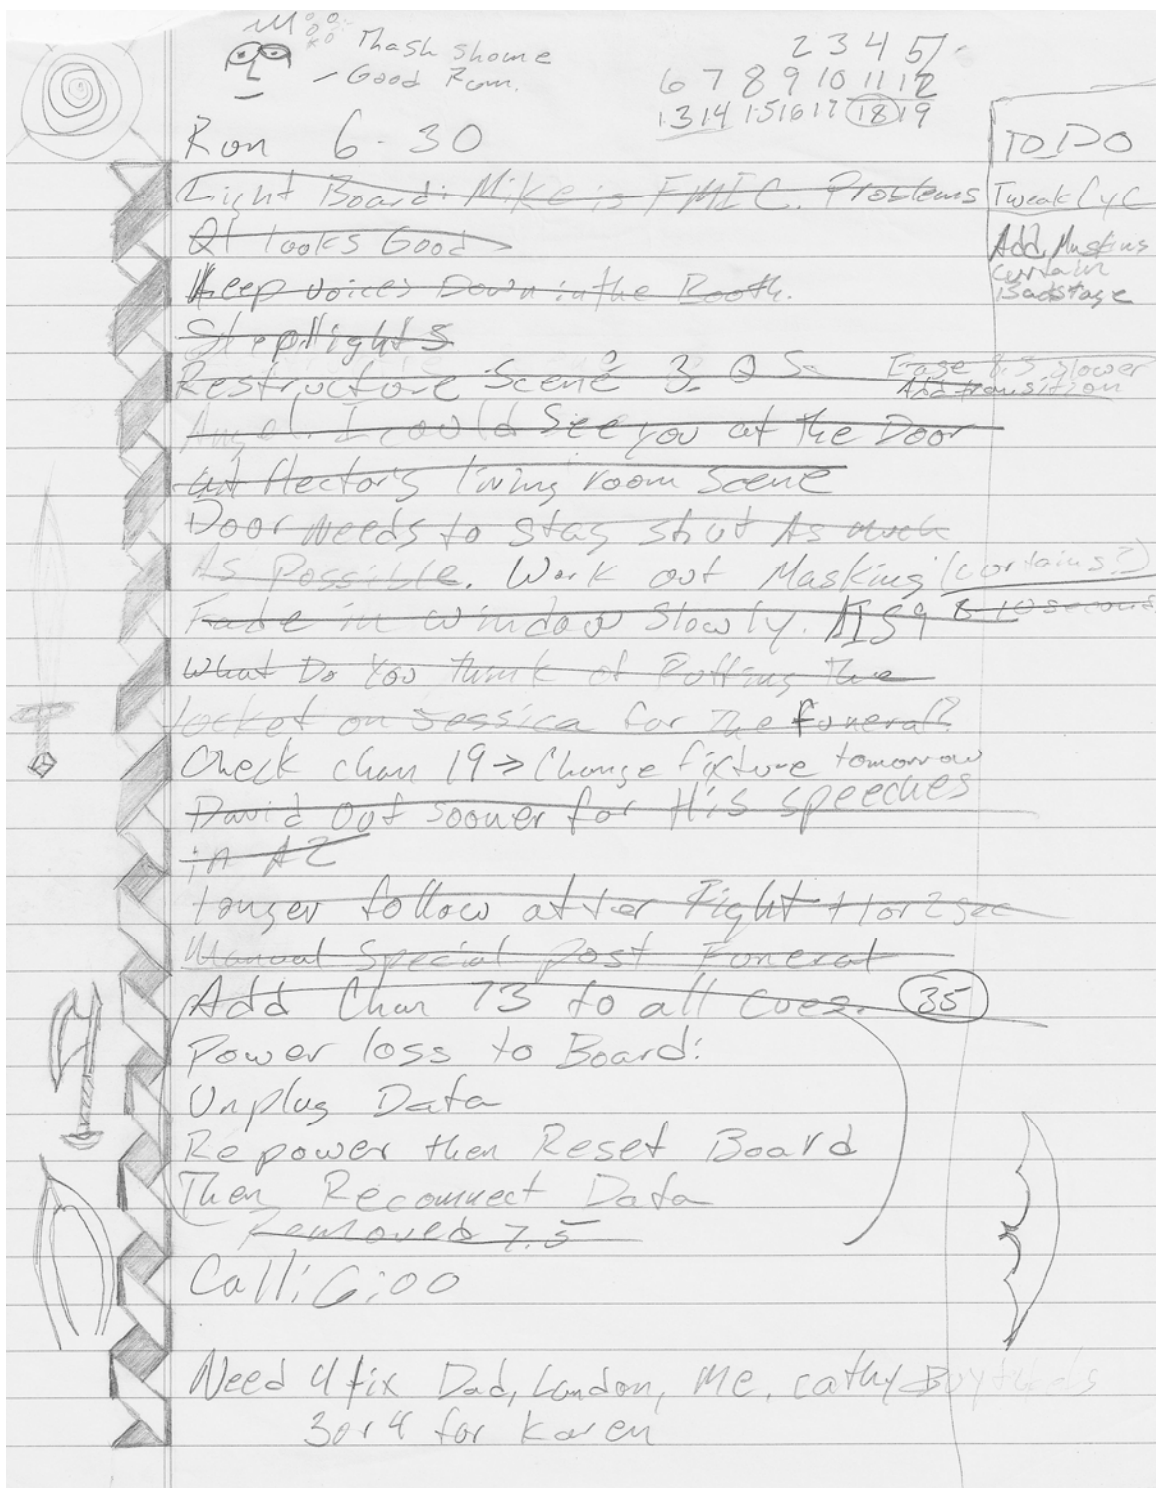 Good Run.
2 3 4 5
6 7 8 9 10 11 12
13 14 15 16 17 18 19
Run 6-30
TO DO
Light Board: Mike is FMIC. Problems
Tweak Cyc
Q1 looks Good
Add Masking
curtain
Backstage
Keep voices Down in the Booth.
Restructure Scene 3. Q 5.
8.5 slower
Add transition
Angel. I could See you at the Door
at Hector's living room scene
Door Needs to stay shut As much
As Possible. Work out Masking (curtains?)
Fade in window Slowly. 8-10 seconds
What Do You think of Putting The
locket on Jessica for The funeral?
Check chan 19 → Change fixture tomorrow
David Out sooner for His speeches
in A2
Longer follow after Fight + 1 or 2 sec
Manual Special post Funeral
Add Chan 73 to all cues. 35
Power loss to Board:
Unplug Data
Repower then Reset Board
Then Reconnect Data
Removed 7.5
Call: 6:00
Need 4 tix Dad, Landon, Me, Cathy
3 or 4 for Karen